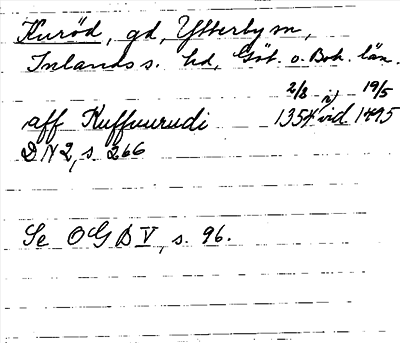 Kurød, gd, Ytterby sn,
Inlands s. hd, Göt. o. Boh. län.
2/8 19/5
aff Kuffuurudi 1354 vid 1495
DN 2, s. 266
Se OGB V, s. 96.